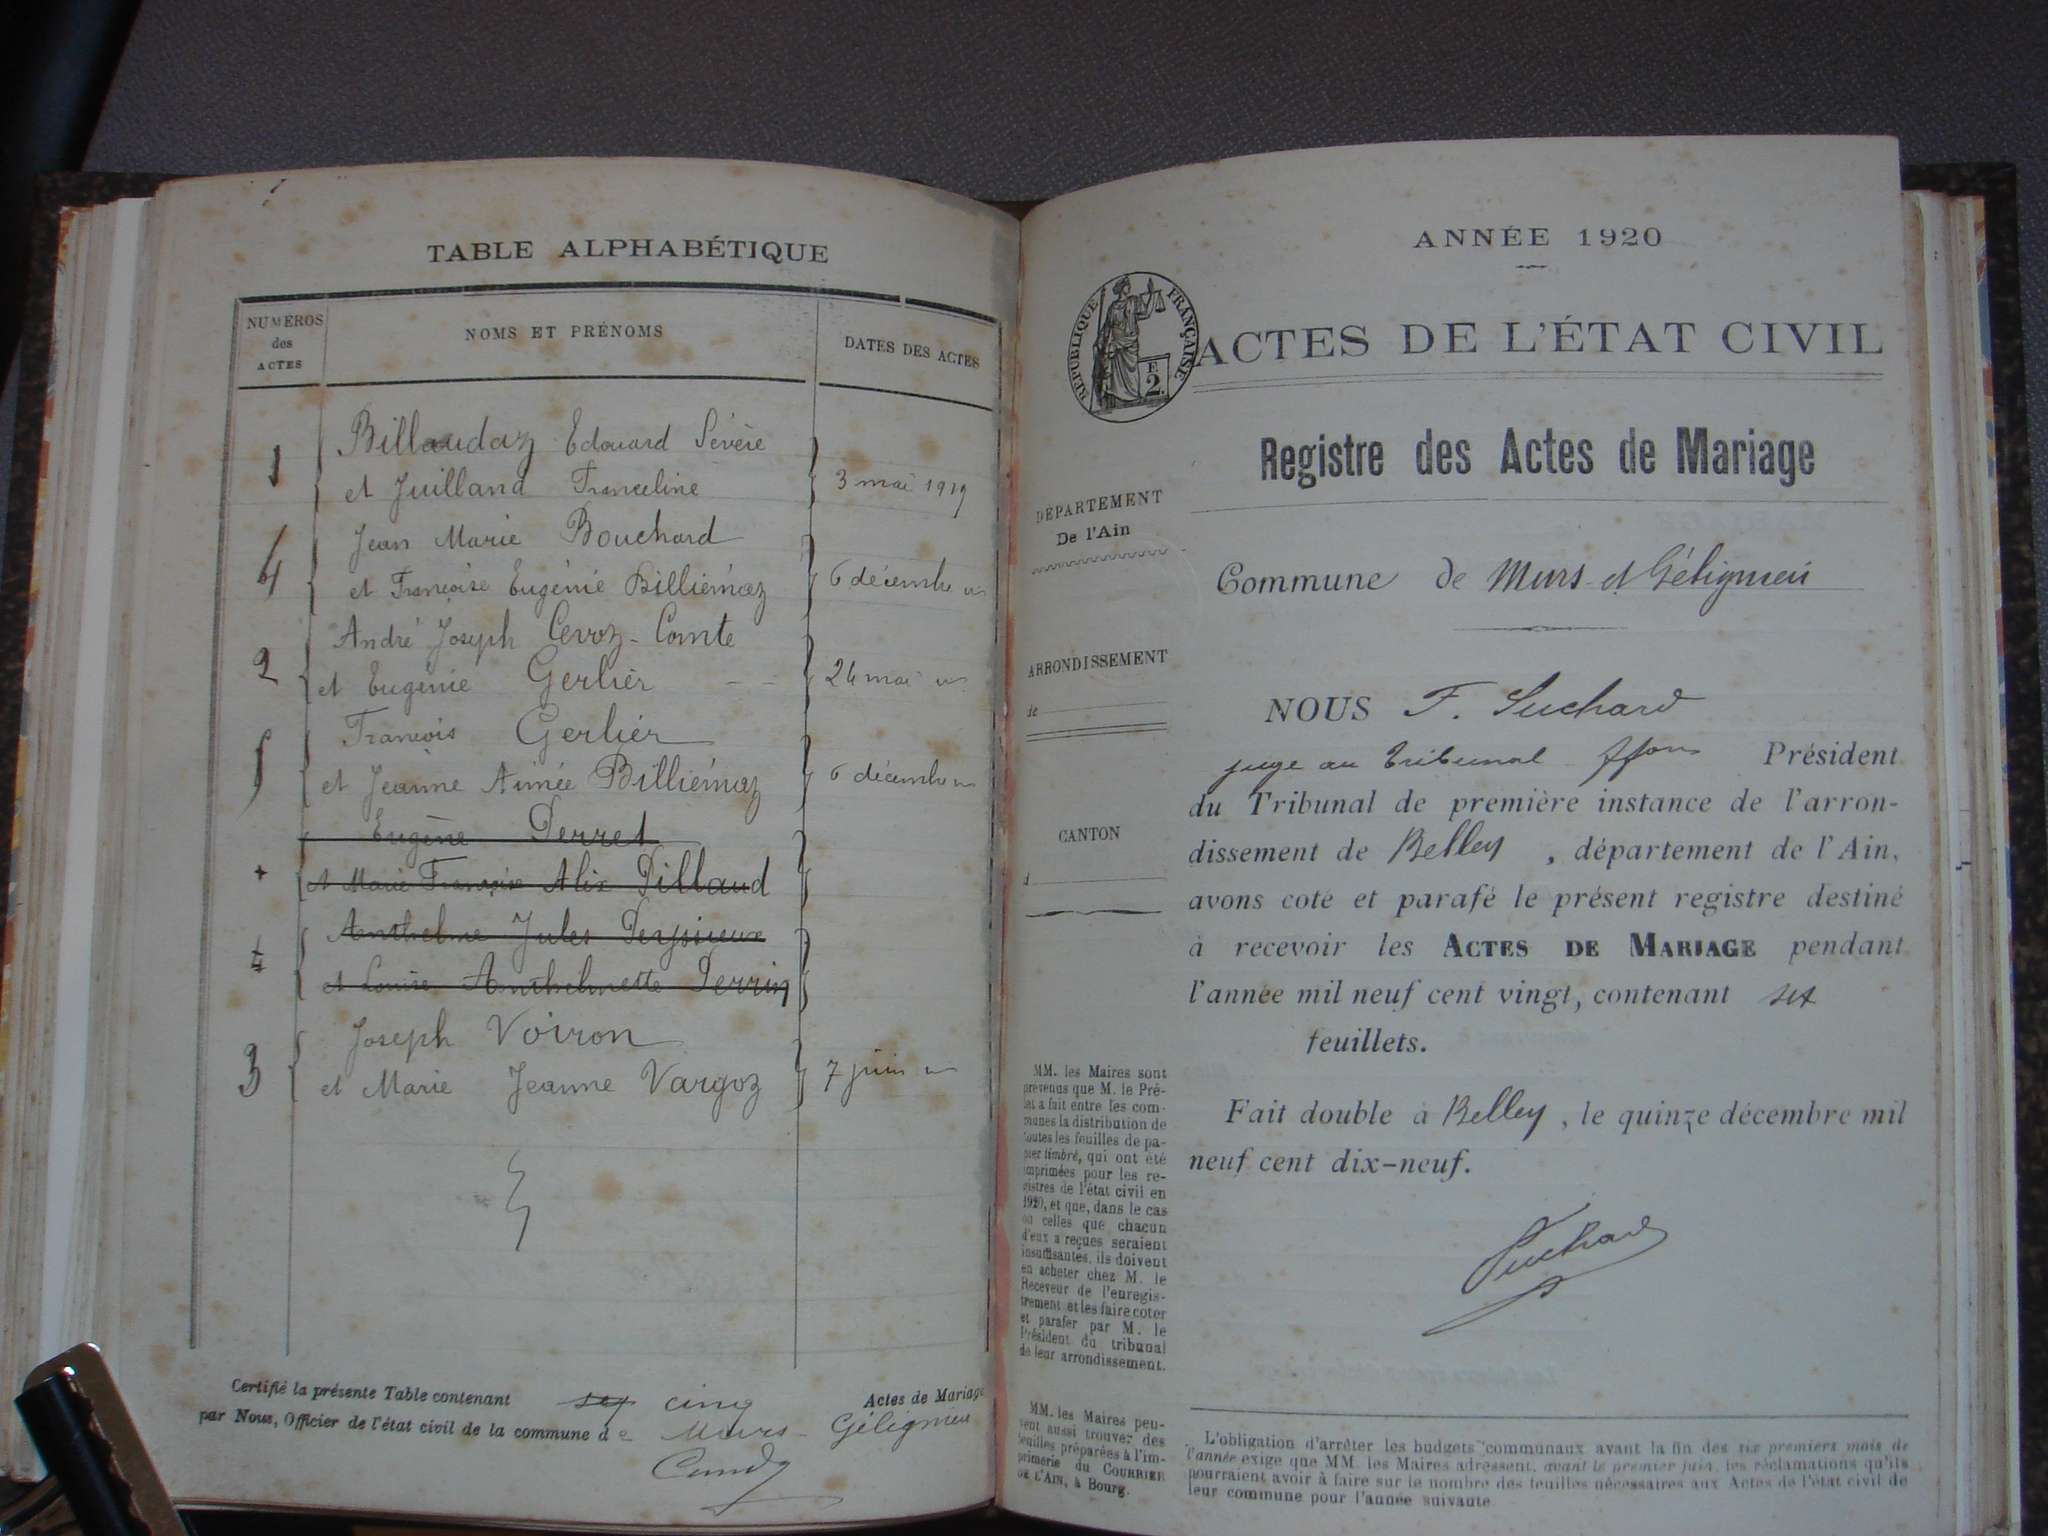 TABLE ALPHABÉTIQUE
NUMEROS des ACTES
NOMS ET PRÉNOMS
DATES DES ACTES
1 Billaudaz Edouard Sévère
et Juilland Franceline 3 mai 1919
4 Jean Marie Bouchard
et Françoise Eugénie Billiémaz 6 décembre
2 André Joseph Cevoz-Comte
et Eugénie Gerlier 24 mai
5 François Gerlier
et Jeanne Aimée Billiémaz 6 décembre
Eugène Perret
et Marie Françoise Alix Pillaud
Anthelme Jules Peyssieux
et Louise Anthelmette Perrin
3 Joseph Voiron
et Marie Jeanne Vargoz 7 juin
Certifié la présente Table contenant sex cinq Actes de Mariage
par Nous, Officier de l'état civil de la commune de Murs-Gélignieu
ANNÉE 1920
RÉPUBLIQUE FRANÇAISE
E 2.
ACTES DE L'ÉTAT CIVIL
Registre des Actes de Mariage
DÉPARTEMENT
De l'Ain
Commune de Murs et Gélignieu
ARRONDISSEMENT
de
CANTON
d
NOUS F. Suchard
juge au tribunal ffons Président
du Tribunal de première instance de l'arron-
dissement de Belley, département de l'Ain,
avons coté et parafé le présent registre destiné
à recevoir les ACTES DE MARIAGE pendant
l'année mil neuf cent vingt, contenant sex
feuillets.
Fait double à Belley, le quinze décembre mil
neuf cent dix-neuf.
Suchard
MM. les Maires sont
prévenus que M. le Pré-
fet a fait entre les com-
munes la distribution de
toutes les feuilles de pa-
pier timbré, qui ont été
imprimées pour les re-
gistres de l'état civil en
1920, et que, dans le cas
où celles que chacun
d'eux a reçues seraient
insuffisantes, ils doivent
en acheter chez M. le
Receveur de l'enregis-
trement et les faire coter
et parafer par M. le
Président du tribunal
de leur arrondissement.
MM. les Maires peu-
vent aussi trouver des
feuilles préparées à l'im-
primerie du COURRIER
DE L'AIN, à Bourg.
L'obligation d'arrêter les budgets communaux avant la fin des six premiers mois de
l'année exige que MM. les Maires adressent, avant le premier juin, les réclamations qu'ils
pourraient avoir à faire sur le nombre des feuilles nécessaires aux Actes de l'état civil de
leur commune pour l'année suivante